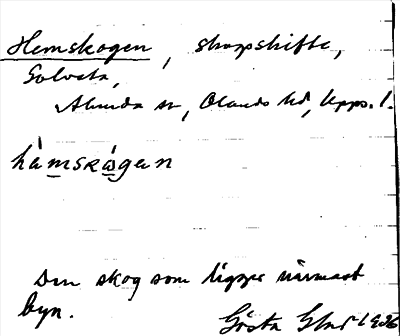 Hemskogen, skogsskifte,
Golvsta,
Alunda sn, Olands hd, Upps. l.
hä̀mskå̀gan
Den skog som ligger närmast
byn.
Gösta 1936